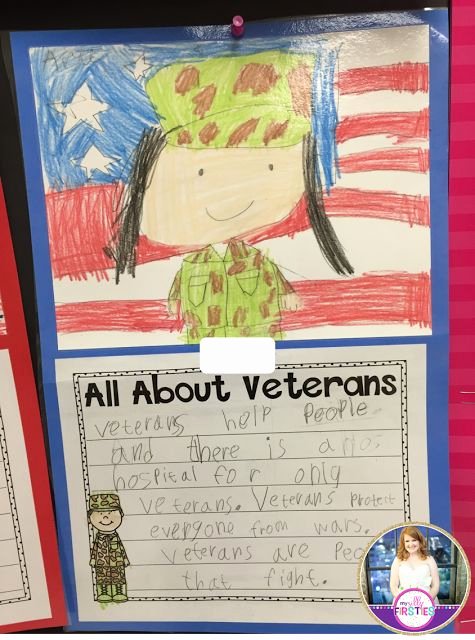 All About Veterans
veterans help People
and there is a
hospital for only
veterans. Veterans protect
everyone from wars.
Veterans are
that fight.
FIRSTIES